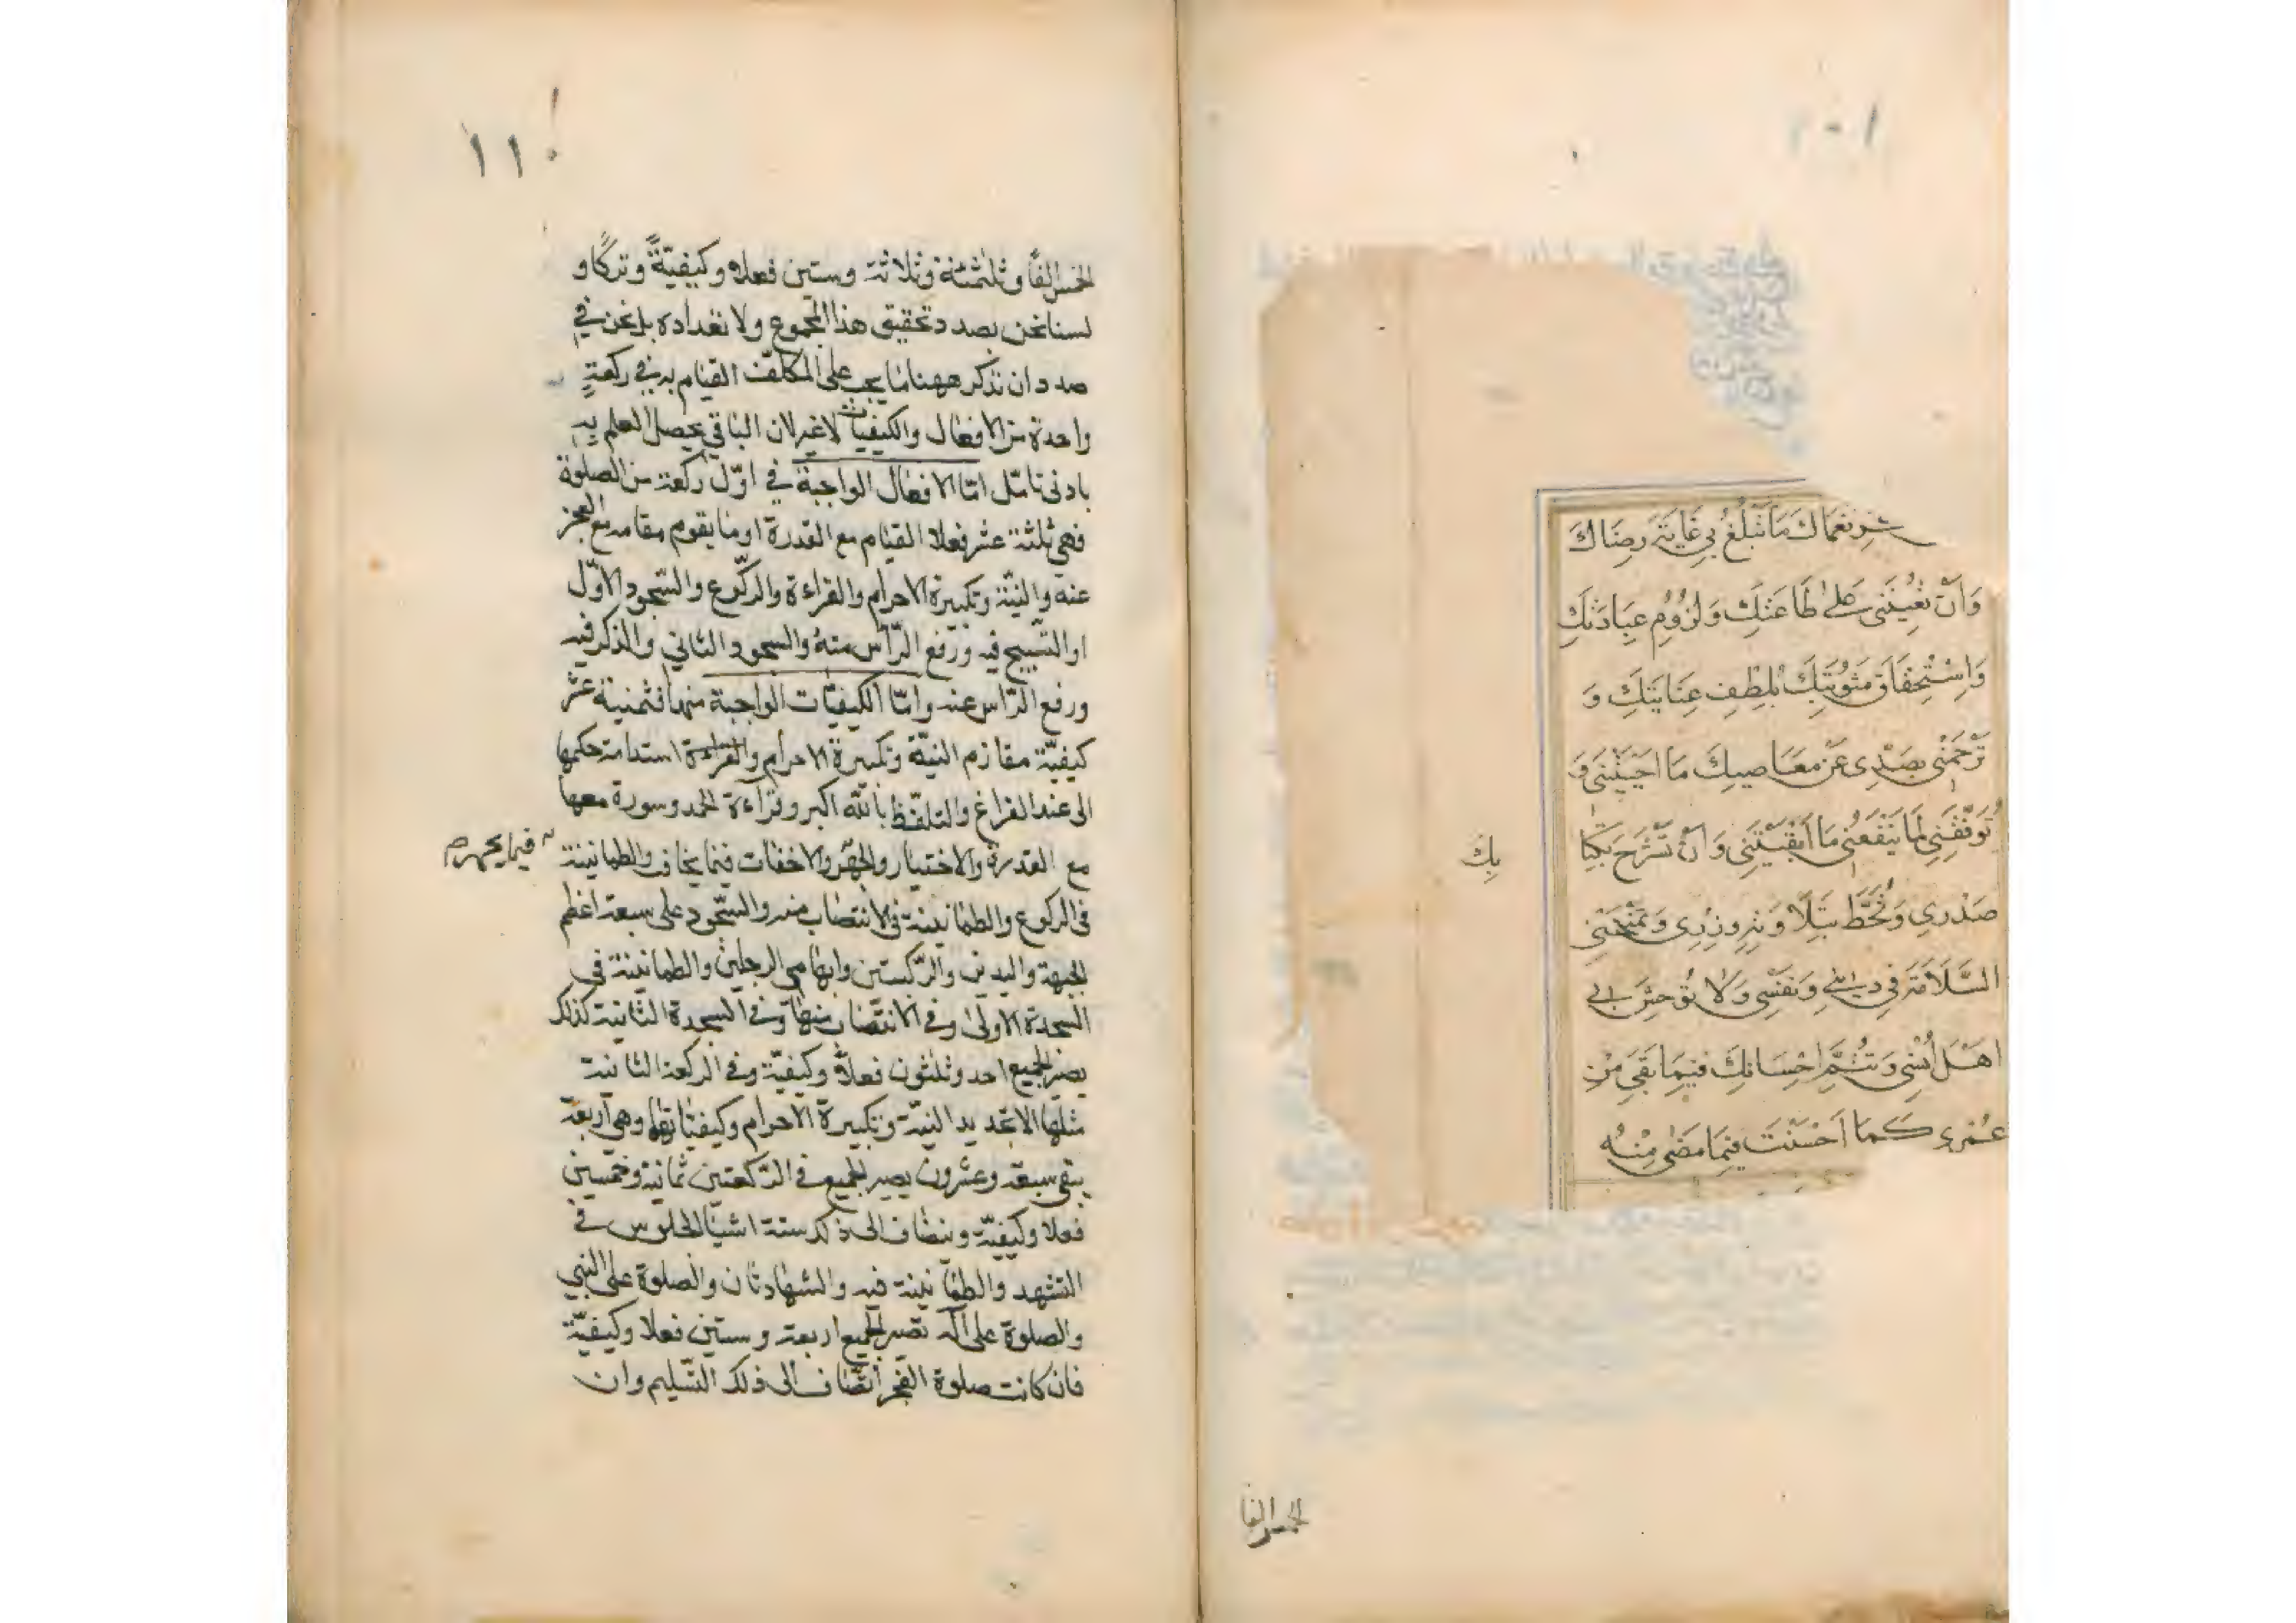 نعماك ما تبلغ بي غاية رضاك
وَأنْ تُعِينَني على طاعَتِكَ وَلزُومِ عِبادَتِكَ
وَاسْتِحقَاقِ مَثُوبَتِكَ بلُطفِ عِنَايَتِكَ وَ
تَرْحَمَني بِصَدّي عَنْ مَعَاصيكَ مَا احيَيْتَني وَ
تُوَفّقَني لِمَا يَنْفَعُني مَا أبْقَيْتَني وَأنْ تَشْرَحَ بكِتَا
بك
صَدْرِي وَتُحَطَّ بتِلاوَتِهِ وزْرِي وَتَمنَحَني
السَّلَامَةَ فِي دِيني وَنَفْسِي وَلَا تُوحِشَ بي
اهْلَ أُنْسِي وَتُتِمَّ احْسَانَكَ فيمَا بَقِيَ مِنْ
عُمْري كَمَا احْسَنْتَ فيمَا مَضَى مِنْهُ
الخمس الفا
١١٠
الخمس الفاً وثلثمئة وثلاثة وستين فعلا وكيفيّةً وتركاً و
لسنا نحن بصدد تحقيق هذا المجموع ولا تعداده بل نحن في
صدد ان نذكر ههنا ما يجب على المكلّف القيام به في ركعةٍ
واحدة من الافعال والكيفيات لا غير لان الباقي يحصل العلم به
بادنى تامّل امّا الافعال الواجبة في اوّل ركعة من الصلوة
فهي ثلثة عشر فعلا القيام مع القدرة او ما يقوم مقامه مع العجز
عنه والنيّة وتكبيرة الاحرام والقراءة والركّوع والسّجود الاوّل
او التسبيح فيه ورفع الرّاس منه والسجود الثاني والذكر فيه
ورفع الرّاس عنه وامّا الكيفيّات الواجبة منها فثمنية عشر
كيفيّة النيّة وتكبيرة الاحرام استدامة حكمها
الى عند الفراغ والتلفّظ بالله اكبر وقراءة الحمد وسورة معها
مع القدرة والاختيار والجهر والاخفات فيما يخافت والطمانينة
فيما يجهر صح
في الركوع والطمانينة في الانتصاب منه والسّجود على سبعة اعظم
الجبهة واليدين والرّكبتين وابهامي الرجلين والطمانينة في
السجدة الاولى وفي الانتصاب منها وفي السجدة الثانية كذلك
يصير الجميع احد وثلثون فعلاً وكيفيّة وفي الركعة الثانية
مثلها الا تجديد النيّة وتكبيرة الاحرام وكيفياتها وهي اربعة
يبقى سبعة وعشرون يصير الجميع في الرّكعتين ثمانية وخمسين
فعلا وكيفيّة وينضاف الى ذلك ستة اشيا الجلوس في
التشهد والطمانينة فيه والشهادتان والصلوة على النبي
والصلوة على آله تصير الجميع اربعة وستين فعلا وكيفيّة
فان كانت صلوة الفجر انضاف الى ذلك التّسليم وان